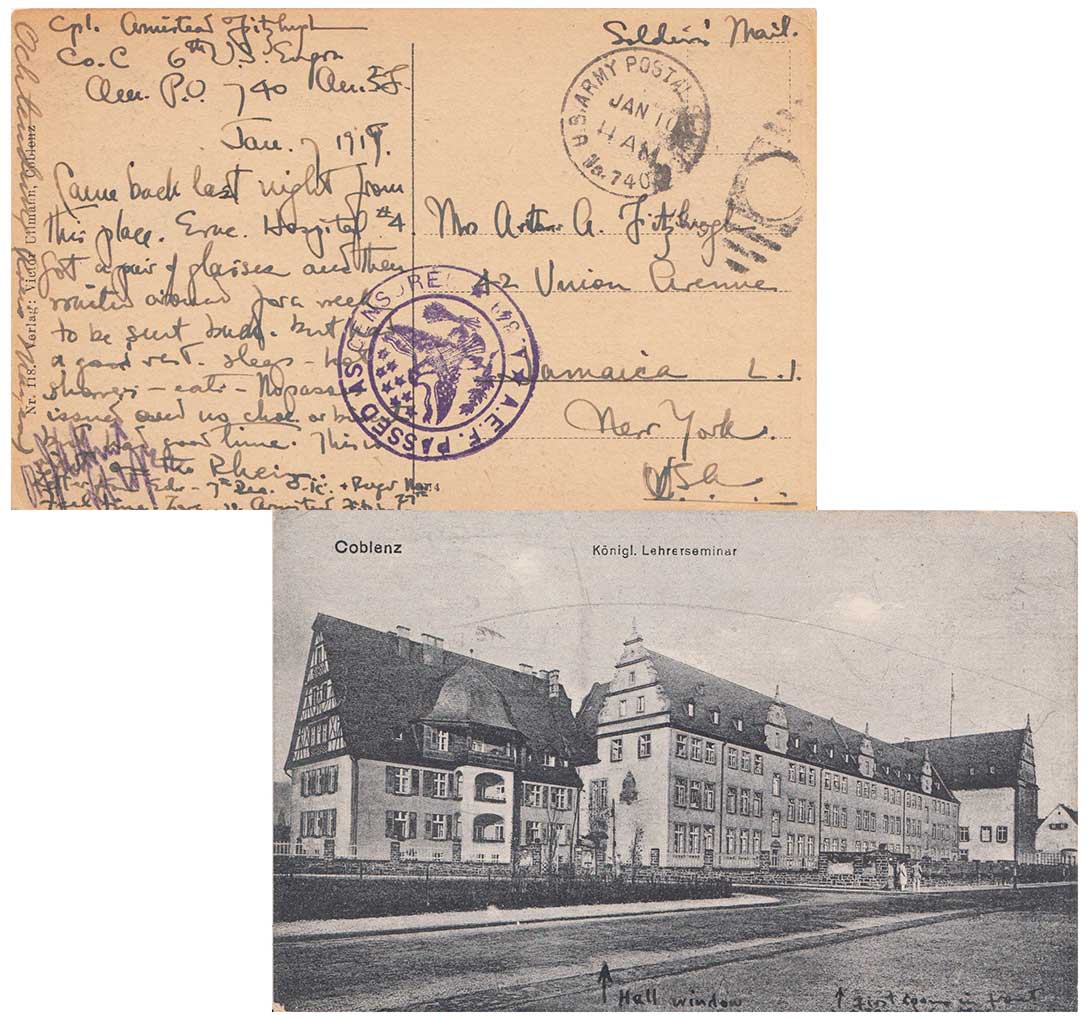 Cpl. Armistead Fitzhugh
Co. C 6th U.S. Engrs
Am. P.O. 740 Am. E.F.
Jan. 7 1919.
Came back last night from
this place. Evac. Hospital #4.
Got a pair of glasses and then
waited around for a week
to be sent back. But had
a good rest - sleep - hot
showers - eats - No passes
issued and no choc. or
but had good time. This is
on the Rhein.
Nr. 118. Verlag: Victor Ullmann, Coblenz
Soldiers' Mail.
U.S. ARMY POSTAL
JAN 10
11 AM
No. 740
Mrs Arthur A. Fitzhugh
42 Union Avenue
Jamaica L.I.
New York.
USA
A.E.F. PASSED AS CENSORED
Coblenz
Königl. Lehrerseminar
↑ Hall window
↑ First room in front